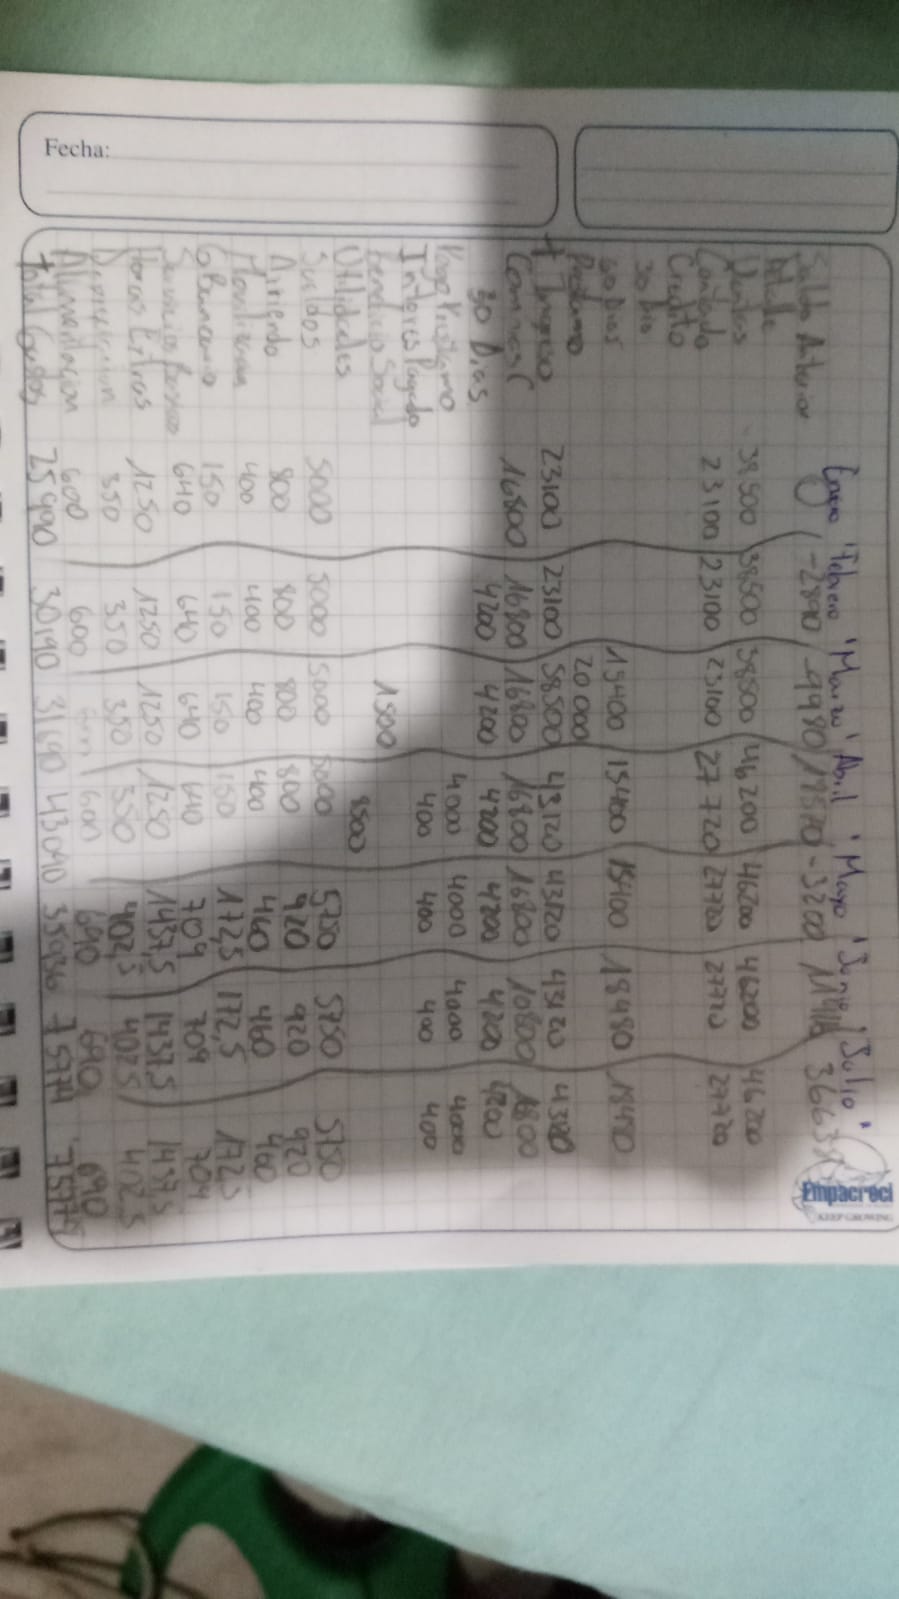 Fecha:
Enero Febrero Marzo Abril Mayo Junio Julio
Saldo Anterior 0 -2890 -9980 17570 -3200
Detalle
Ventas 38500 38500 38500 46200 46200 46200 46200
Contado 23100 23100 23100 27720 27720 27720 27720
Credito
30 Dias
60 Dias 15400 15400 15400 18480 18480
Prestamo 20000
+ Ingreso 23100 23100 58500 43120 43120
Compras C 16800 16800 16800 16800 16800
30 Dias 4200 4200 4200 4200 4200 4200
Pago Prestamo 4000 4000 4000 4000
Interes Pagado 400 400 400 400
Beneficio Social 1500
Utilidades 8500
Sueldos 5000 5000 5000 5000 5750 5750 5750
Arriendo 800 800 800 800 920 920 920
400 400 400 400 460 460 460
150 150 150 150 172,5 172,5 172,5
Servicios Basicos 640 640 640 640 709 709 709
Horas Extras 1250 1250 1250 1250 1437,5 1437,5 1437,5
350 350 350 350 402,5 402,5 402,5
Alimentacion 600 600 600 690 690 690
total Gastos 25990 30190 31690 43090
Empacreci
KEEP GROWING